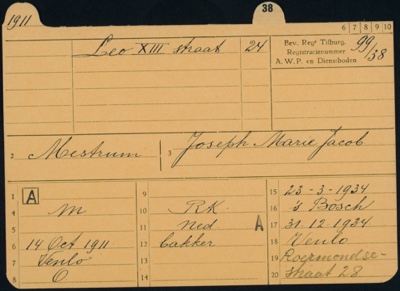 1911
38
6 7 8 9 10
Leo XIII straat 24
Bev. Regr Tilburg.
Registratienummer
A. W. P. en Dienstboden
99/38
2 Mestrum 3 Joseph Marie Jacob
1 A
4 M
5
6 14 Oct 1911
7 Venlo
8 O
9
10 R.K.
11 Ned
12 bakker
13
14
A
15 23-3-1934
16 's Bosch
17 31.12.1934
18 Venlo
19 Roermondse-
20 straat 28